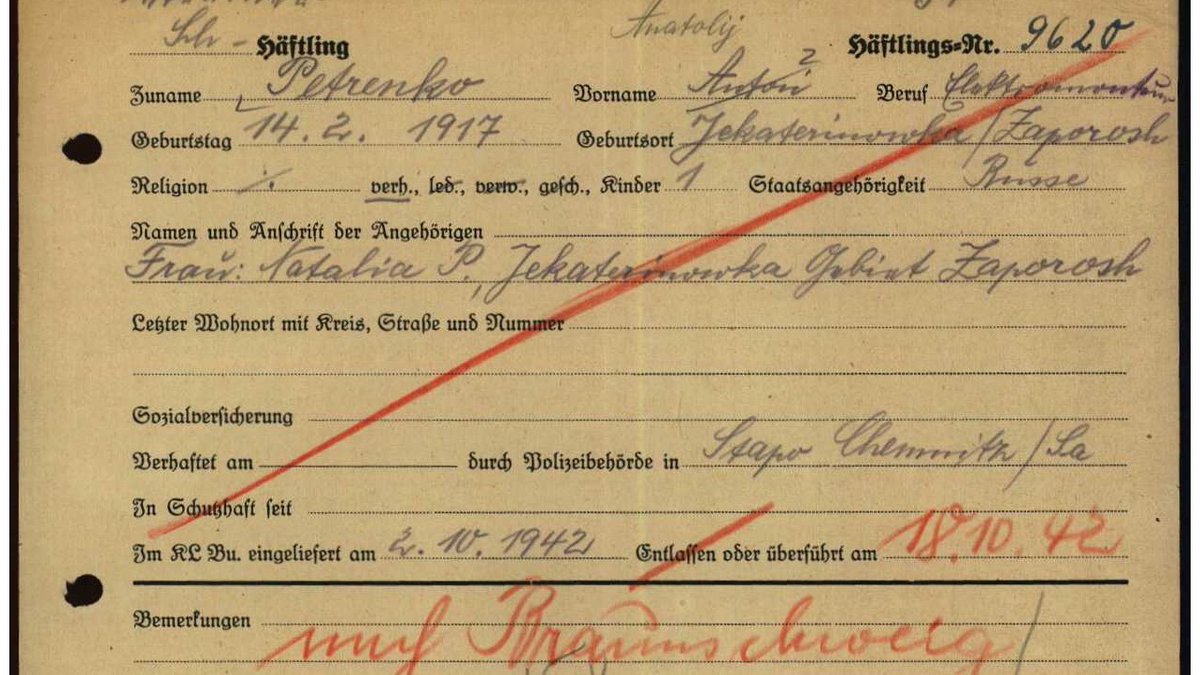 Anatolij
Sch - Häftling Häftlings=Nr. 9620
2
Zuname Petrenko Vorname Anton Beruf Elektromonteur
Geburtstag 14. 2. 1917 Geburtsort Jekaterinowka / Zaporosh
Religion ./. verh., led., verw., gesch., Kinder 1 Staatsangehörigkeit Russe
Namen und Anschrift der Angehörigen
Frau: Natalia P., Jekaterinowka Gebiet Zaporosh
Letzter Wohnort mit Kreis, Straße und Nummer
Sozialversicherung
Verhaftet am durch Polizeibehörde in Stapo Chemnitz / Sa
In Schutzhaft seit
Im KL Bu. eingeliefert am 2. 10. 1942 Entlassen oder überführt am 18. 10. 42
Bemerkungen nach Braunschweig